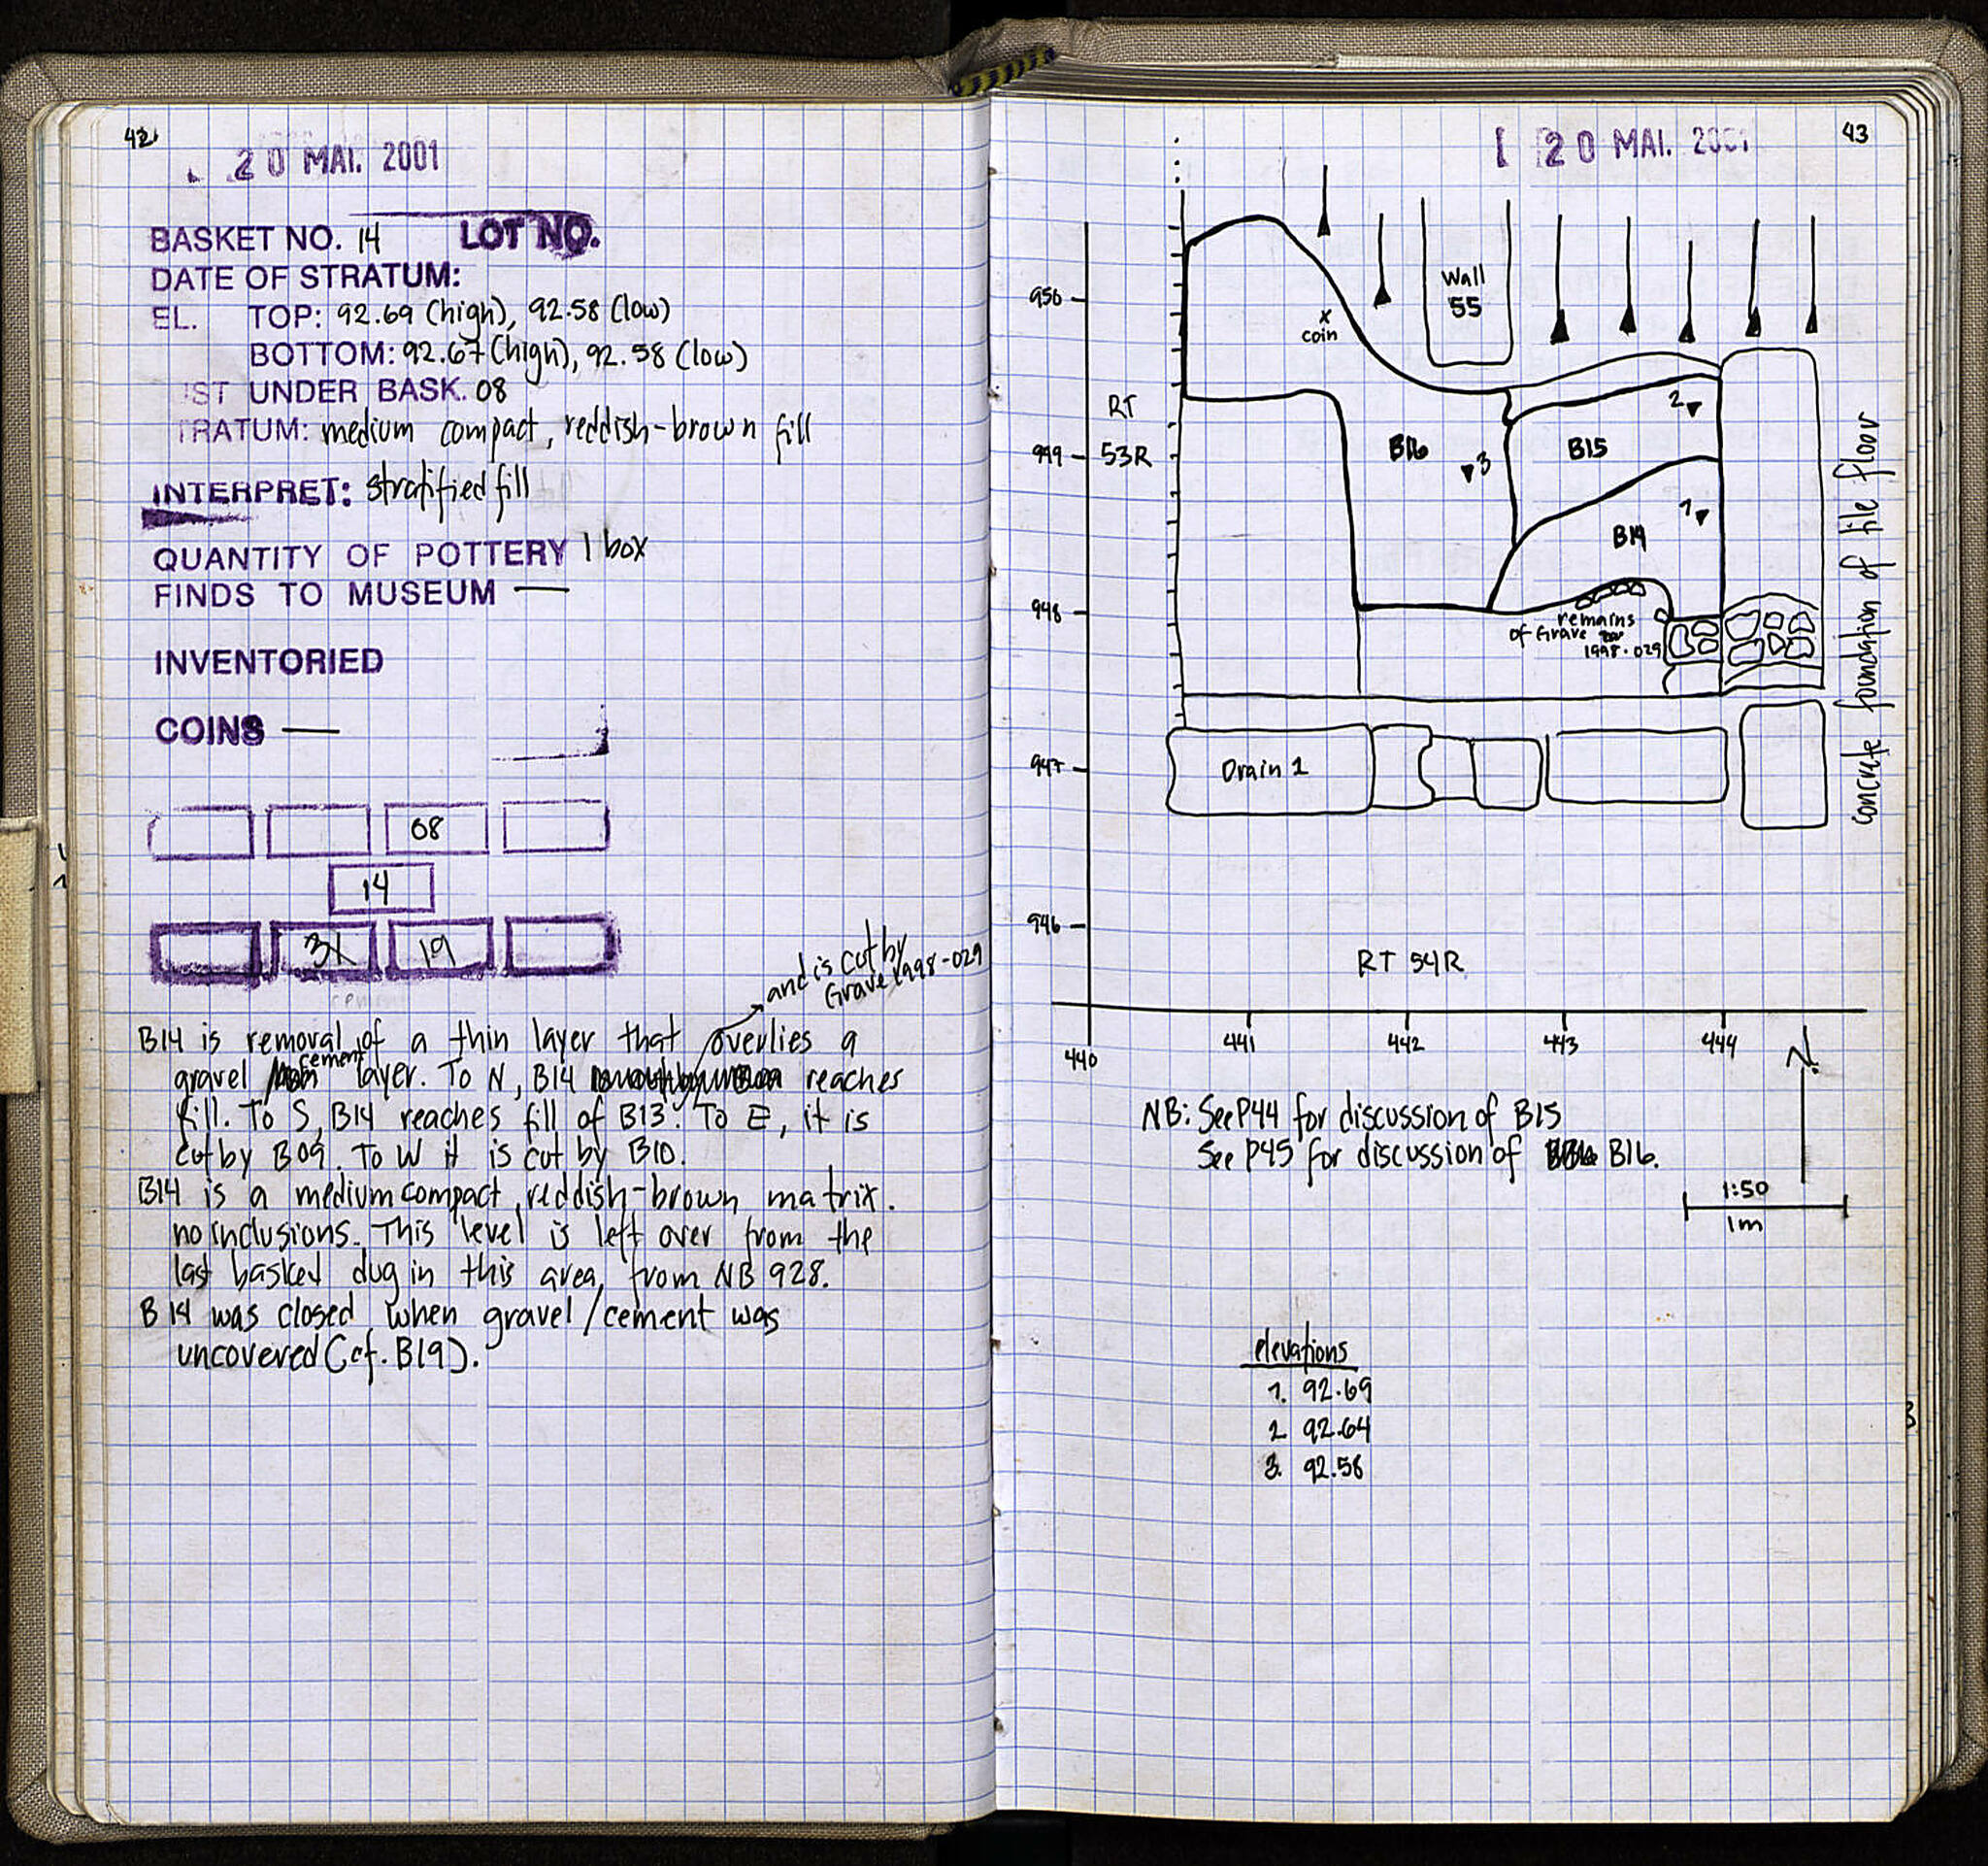 42
20 MAI. 2001
BASKET NO. 14 LOT NO.
DATE OF STRATUM:
EL. TOP: 92.69 (high), 92.58 (low)
BOTTOM: 92.67 (high), 92.58 (low)
ST UNDER BASK. 08
TRATUM: medium compact, reddish-brown fill
INTERPRET: stratified fill
QUANTITY OF POTTERY 1 box
FINDS TO MUSEUM —
INVENTORIED
COINS —
08
14
19
and is cut by
Grave 1998-029
B14 is removal of a thin layer that overlies a
gravel cement layer. To N, B14 reaches
fill. To S, B14 reaches fill of B13. To E, it is
cut by B09. To W it is cut by B10.
B14 is a medium compact, reddish-brown matrix.
no inclusions. This level is left over from the
last basked dug in this area, from NB 928.
B14 was closed when gravel/cement was
uncovered (cf. B19).
43
20 MAI. 2001
950
Wall
55
x
coin
RT
53R
949
2
B16
3
B15
1
B14
948
remains
of Grave
1998-029
concrete foundation of tile floor
947
Drain 1
946
RT 54R
440
441
442
443
444
N.
NB: See P44 for discussion of B15
See P45 for discussion of B16.
1:50
1m
elevations
1. 92.69
2 92.64
3. 92.58